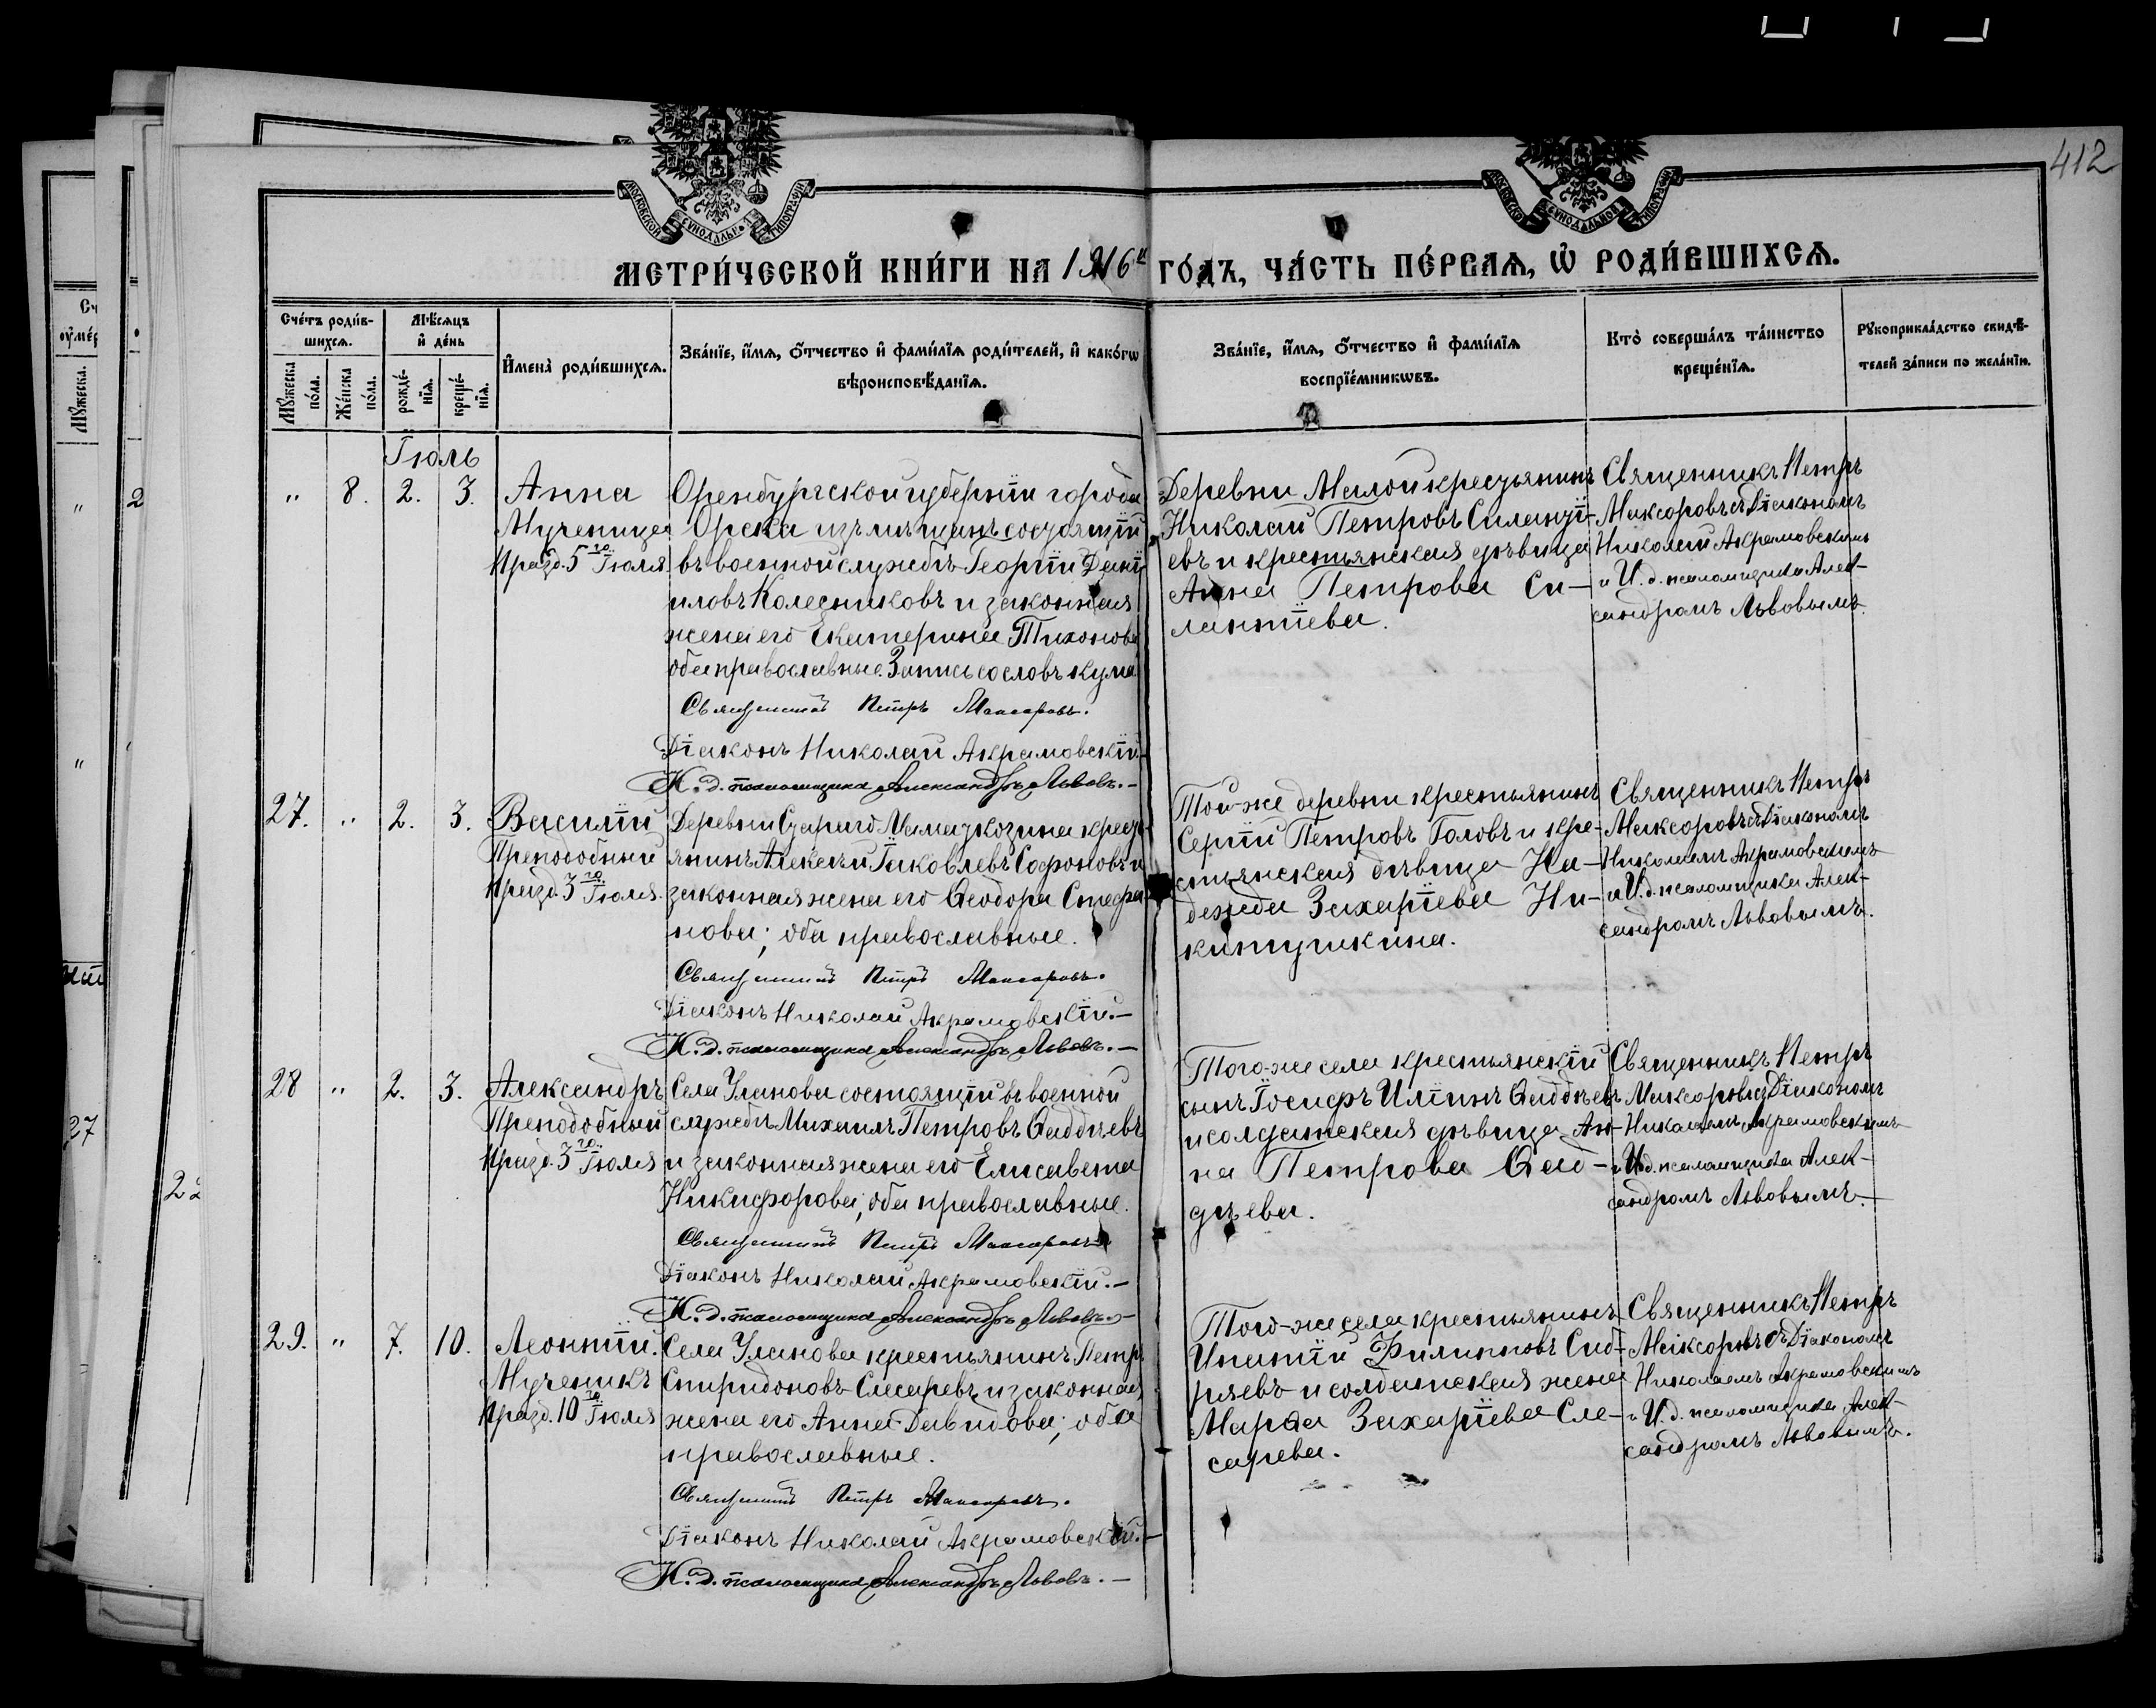 412
МОСКОВСКОЙ СУНОДАЛЬН. ТИПОГРАФІИ
МОСКОВСКОЙ СУНОДАЛЬНОЙ ТИПОГРАФІИ
МЕТРИ́ЧЕСКОЙ КНИ́ГИ НА 1916й ГО́ДЪ, ЧА́СТЬ ПЕ́РВАѦ, Ѡ҆ РОДИ́ВШИХСѦ.
Сче́тъ роди́в-
шихсѧ.
Мѣ́сѧцъ
и҆ де́нь
Мꙋ́жеска
по́ла.
Же́нска
по́ла.
рожде́-
нїѧ.
креще́-
нїѧ.
И҆мена̀ роди́вшихсѧ.
Зва́нїе, и҆́мѧ, ѻ҆́тчество и҆ фами́лїѧ роди́телей, и҆ како́гѡ
вѣроисповѣ́данїѧ.
Зва́нїе, и҆́мѧ, ѻ҆́тчество и҆ фами́лїѧ
воспрїе́мникѡвъ.
Кто̀ соверша́лъ та́инство
креще́нїѧ.
Рꙋкоприкла́дство свидѣ́-
телей за́писи по жела́нїю.
Іюль
" 8. 2. 3.
Анна
Мученица
празд. 5го Іюля
Оренбургской губерніи города
Орска изъ мѣщанъ состоящій
въ военной службѣ Георгій Дані-
иловъ Колесниковъ и законная
жена его Екатерина Тихонова
оба православные. Запись со словъ кума
Священникъ Петръ Максоровъ.
Діаконъ Николай Акрамовскій.
И. д. псаломщика Александръ Львовъ. –
Деревни Малой крестьянинъ
Николай Петровъ Силанті-
евъ и крестьянская дѣвица
Анна Петрова Си-
лантіева.
Священникъ Петръ
Максоровъ съ Діакономъ
Николай Акрамовскимъ
и И. д. псаломщика Алек-
сандромъ Львовымъ.
27. " 2. 3.
Василій
Преподобный
празд. 3го Іюля.
Деревни Стараго Маматкозина кресть-
янинъ Алексѣй Іаковлевъ Софоновъ и
законная жена его Ѳеодора Стефа-
нова; оба православные.
Священникъ Петръ Максоровъ.
Діаконъ Николай Акрамовскій. –
И. д. псаломщика Александръ Львовъ. –
Той-же деревни крестьянинъ
Сергій Петровъ Головъ и кре-
стьянская дѣвица На-
дежда Захаріева Ни-
китушкина.
Священникъ Петръ
Максоровъ съ Діакономъ
Николаемъ Акрамовскимъ
и И. д. псаломщика Алек-
сандромъ Львовымъ.
28 " 2. 3.
Александръ
Преподобный
празд. 3го Іюля
Села Уланова состоящій въ военной
службѣ Михаилъ Петровъ Ѳаддѣевъ
и законная жена его Елисавета
Никифорова; оба православные.
Священникъ Петръ Максоровъ
Діаконъ Николай Акрамовскій. –
И. д. псаломщика Александръ Львовъ. –
Того-же села крестьянскій
сынъ Іосифъ Иліинъ Ѳаддѣевъ
и солдатская дѣвица Ан-
на Петрова Ѳад-
дѣева.
Священникъ Петръ
Максоровъ съ Діакономъ
Николаемъ Акрамовскимъ
и И. д. псаломщика Алек-
сандромъ Львовымъ.
29. " 7. 10.
Леонтій.
Мученикъ
празд. 10го Іюля
Села Уланова крестьянинъ Петръ
Спиридоновъ Слесаревъ и законная
жена его Анна Давидова; оба
православные.
Священникъ Петръ Максоровъ.
Діаконъ Николай Акрамовскій. –
И. д. псаломщика Александръ Львовъ. –
Того-же села крестьянинъ
Ипатій Филипповъ Сиб-
ряевъ и солдатская жена
Марѳа Захаріева Сле-
сарева.
Священникъ Петръ
Максоровъ съ Діакономъ
Николаемъ Акрамовскимъ
и И. д. псаломщика Алек-
сандромъ Львовымъ.
27
2